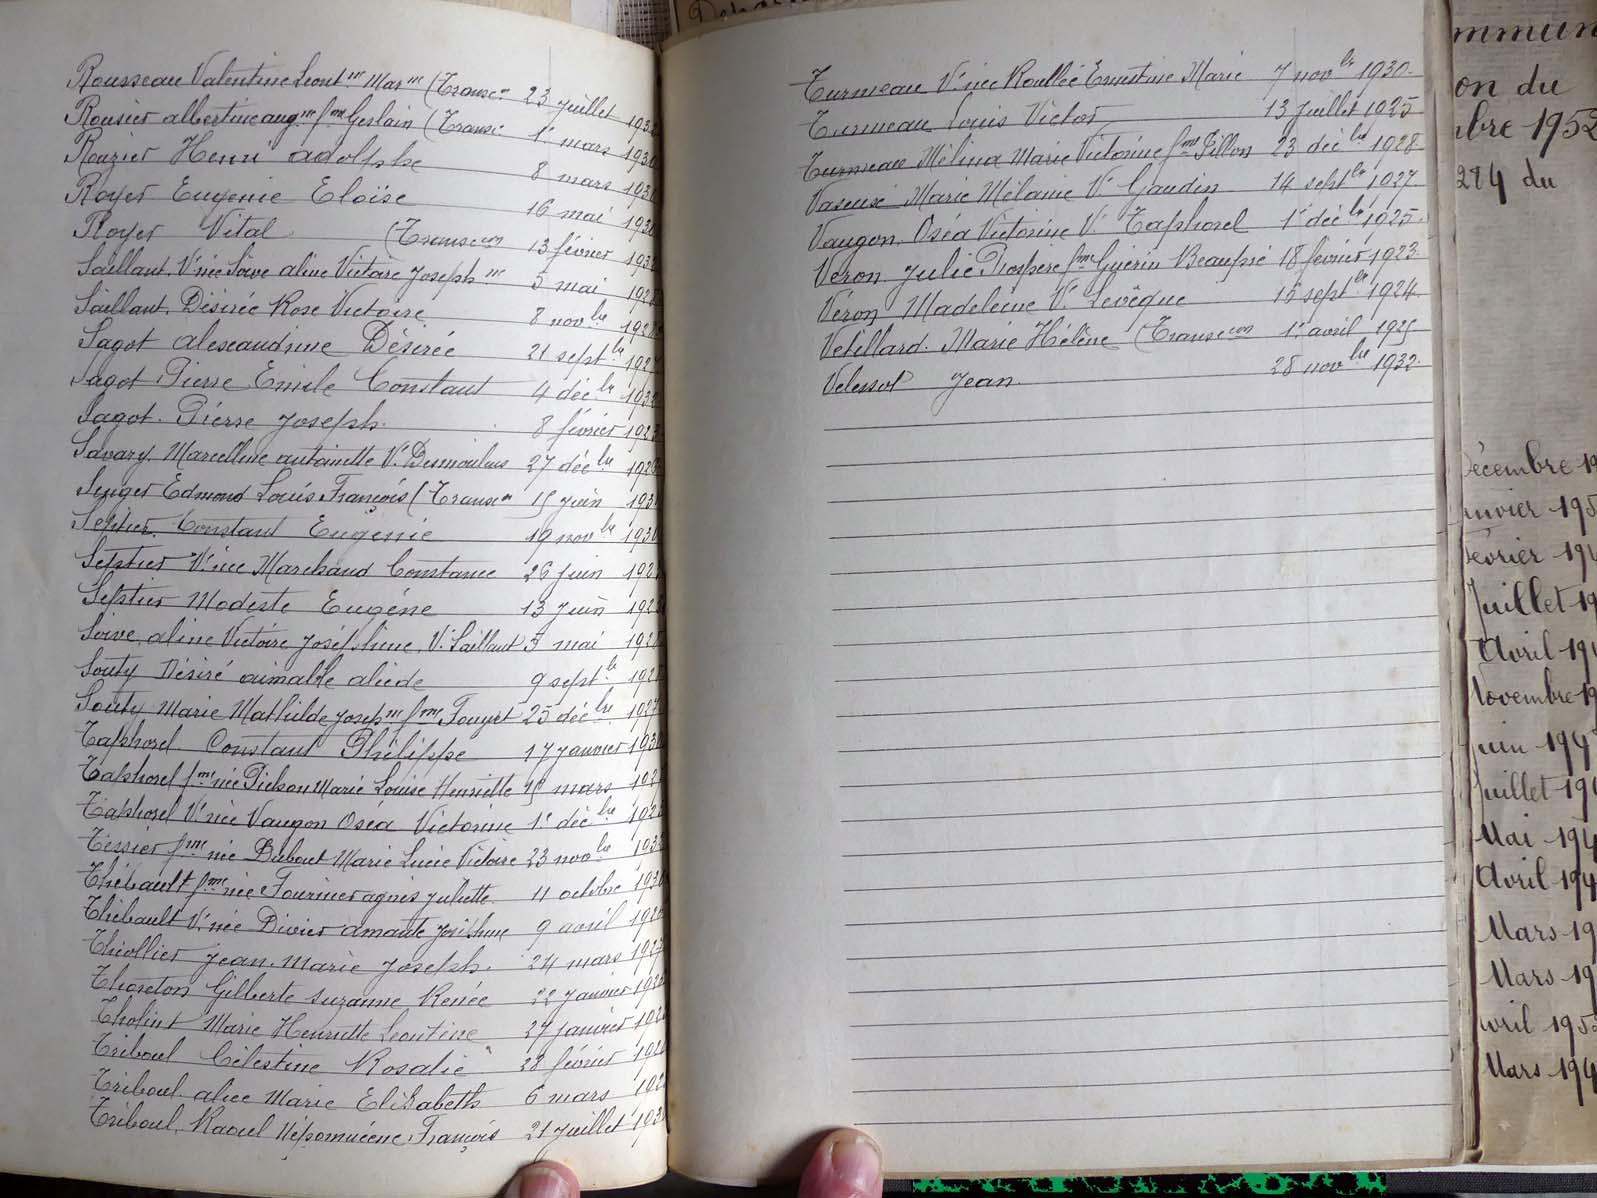 Rousseau Valentine Leont.ne Mar.ne (Transc.on 23 juillet 193
Rousier albertine aug.ne f.me Geslain (Transc. 1er mars 1930
Rouzier Henri adolphe 8 mars 193
Royer Eugenie Eloïse 16 mai 193
Royer Vital (Transc.on 13 février 193
Saillant Ve née Soive aline Victoire Joseph.ne 5 mai 192
Saillant Désirée Rose Victoire 8 nov.bre 192
Sagot alexandrine Désirée 21 sept.bre 192
Sagot Pierre Emile Constant 4 déc.bre 193
Sagot Pierre Joseph 8 février 192
Savary Marcelline antoinette Ve Desmoulins 27 déc.bre 192
Senger Edmond Louis François (Transc.on 15 juin 193
Septier Constant Eugénie 19 nov.bre 193
Septier Ve née Marchand Constance 26 juin 192
Septier Modeste Eugéne 13 juin 192
Soive aline Victoire Joséphine Ve Saillant 5 mai 192
Souty Désiré aimable alcide 9 sept.bre 192
Souty Marie Mathilde Joseph.ne f.me Fouyet 25 déc.bre 192
Taphorel Constant Philippe 17 janvier 1930
Taphorel f.me née Pichon Marie Louise Henriette 15 mars 192
Taphorel Ve née Vaugon Oséa Victorine 1er déc.bre 192
Tessier f.me née Dubout Marie Lucie Victoire 23 nov.bre 193
Thébault f.me née Fournier agnés juliette 11 octobre 193
Thébault Ve née Divier amante Joséphine 9 avril 192
Thiollier Jean-Marie Joseph 24 mars 192
Thoreton Gilberte Suzanne Renée 22 janvier 192
Tholint Marie Henriette Leontine 27 janvier 192
Triboul Célestine Rosalie 28 février 192
Triboul alice Marie Elisabeth 6 mars 192
Triboul Raoul Népomucène François 21 juillet 193
Turmeau Ve née Roullée Ernestine Marie 7 nov.bre 1930
Turmeau Louis Victor 13 juillet 1925
Turmeau Mélina Marie Victorine f.me Pillon 23 déc.bre 1928
Vaseuse Marie Mélanie Ve Gaudin 14 sept.bre 1927
Vaugon Oséa Victorine Ve Taphorel 1er déc.bre 1925
Veron Julie Prospère f.me Guérin Beaupré 18 février 1923
Véron Madeleine Ve Levêque 15 sept.bre 1924
Vetillard Marie Hélène (Transc.on 1er avril 1925
Velessot Jean 28 nov.bre 1932
mmun
on du
bre 1952
284 du
Décembre 19
anvier 195
Février 19
Juillet 19
Avril 19
Novembre 19
Juin 194
Juillet 19
Mai 194
Avril 194
Mars 19
Mars 19
Avril 195
Mars 194